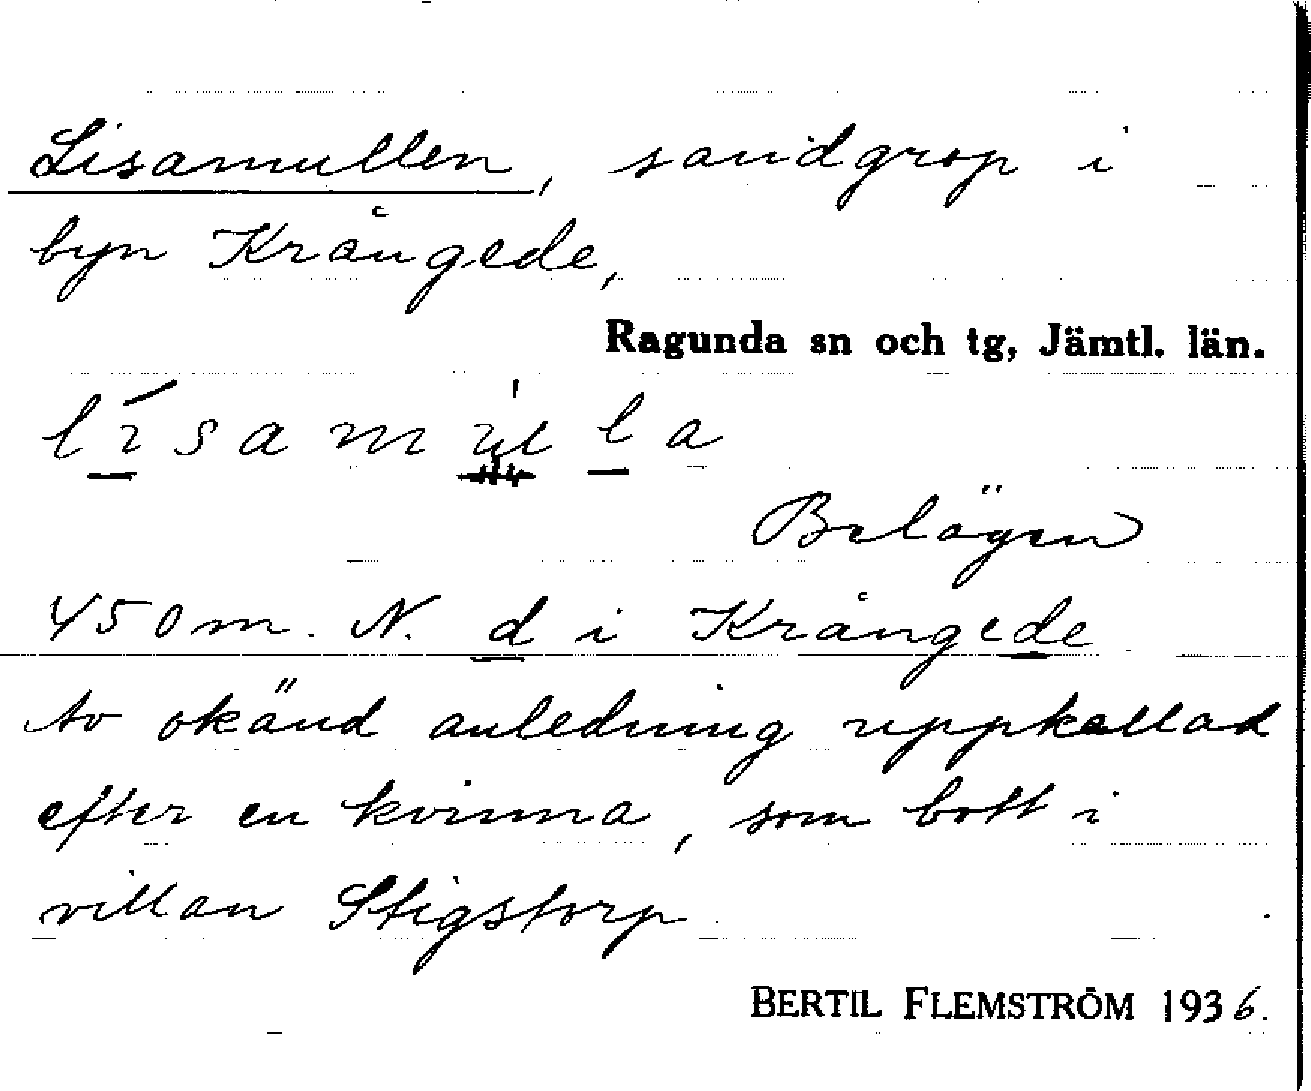 Lisamullen, sandgrop i
byn Krångede,
Ragunda sn och tg, Jämtl. län.
Belägen
450 m. N. d i Krångede
Av okänd anledning uppkallad
efter en kvinna, som bott i
villan Stigstorp
BERTIL FLEMSTRÖM 1936.